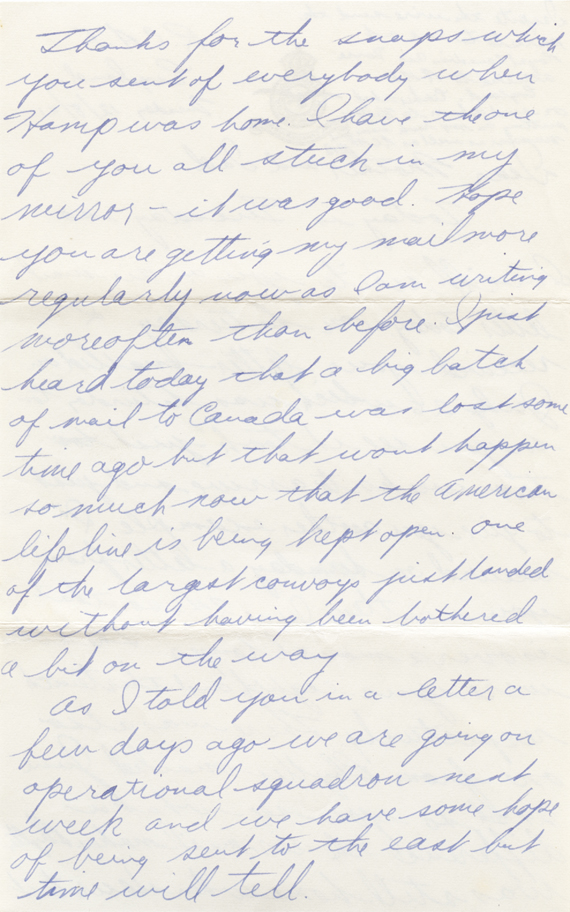 Thanks for the snaps which
you sent of everybody when
Hamp was home. I have the one
of you all stuck in my
mirror - it was good. Hope
you are getting my mail more
regularly now as I am writing
more often than before. I just
heard today that a big batch
of mail to Canada was lost some
time ago but that wont happen
so much now that the American
life line is being kept open. One
of the largest convoys just landed
without having been bothered
a bit on the way
As I told you in a letter a
few days ago we are going on
operational squadron next
week and we have some hope
of being sent to the east but
time will tell.